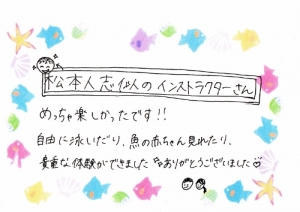 松本人志似のインストラクターさん
めっちゃ楽しかったです!!
自由に泳いだり、魚の赤ちゃん見れたり、
貴重な体験ができました ありがとうございました